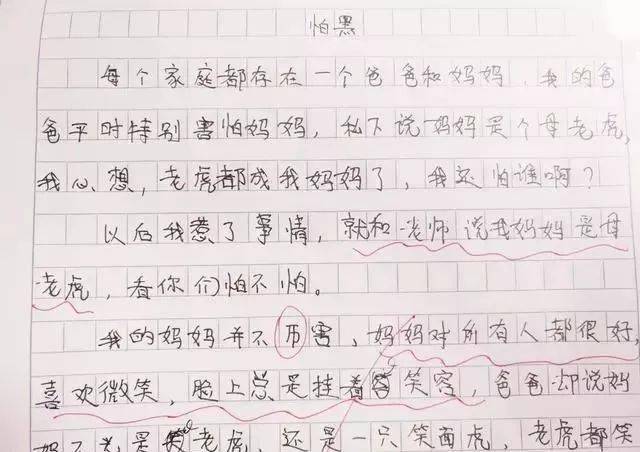 怕黑
每个家庭都存在一个爸爸和妈妈，我的爸
爸平时特别害怕妈妈，私下说妈妈是个母老虎，
我心想，老虎都成我妈妈了，我还怕谁啊？
以后我惹了事情，就和老师说我妈妈是母
老虎，看你们怕不怕。
我的妈妈并不厉害，妈妈对所有人都很好，
喜欢微笑，脸上总是挂着笑容，爸爸却说妈
是老虎，还是一只笑面虎，老虎都笑